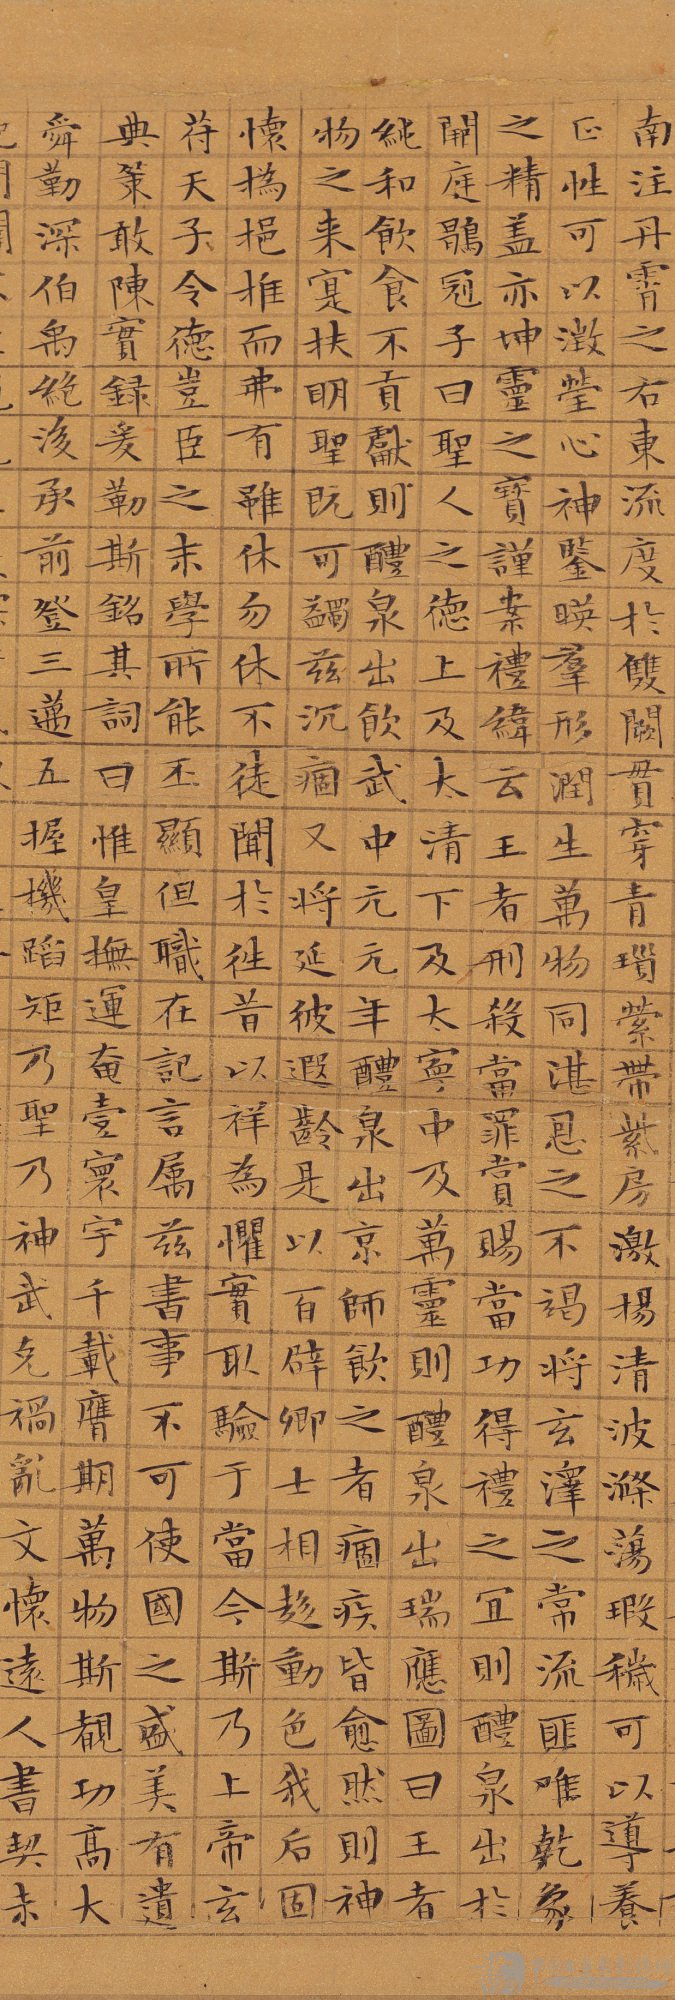 南注丹霄之右東流度於雙闕貫穿青瑣縈帶紫房激揚清波滌蕩瑕穢可以導養
正性可以澂瑩心神鑒暎羣形潤生萬物同湛恩之不竭將玄澤之常流匪唯乾象
之精盖亦坤靈之寶謹案禮緯云王者刑殺當罪賞賜當功得禮之宜則醴泉出於
闕庭鶡冠子曰聖人之德上及太清下及太寧中及萬靈則醴泉出瑞應圖曰王者
純和飲食不貢獻則醴泉出飲武中元元年醴泉出京師飲之者痼疾皆愈然則神
物之来寔扶明聖既可蠲兹沉痼又將延彼遐齡是以百辟卿士相趍動色我后固
懷撝挹推而弗有雖休勿休不徒聞於徃昔以祥為懼實取驗于當今斯乃上帝玄
符天子令德豈臣之末學所能丕顯但職在記言属兹書事不可使國之盛美有遺
典策敢陳實録爰勒斯銘其詞曰惟皇撫運奄壹寰宇千載膺期萬物斯覩功高大
舜勤深伯禹絶後承前登三邁五握機蹈矩乃聖乃神武克禍亂文懷遠人書契未